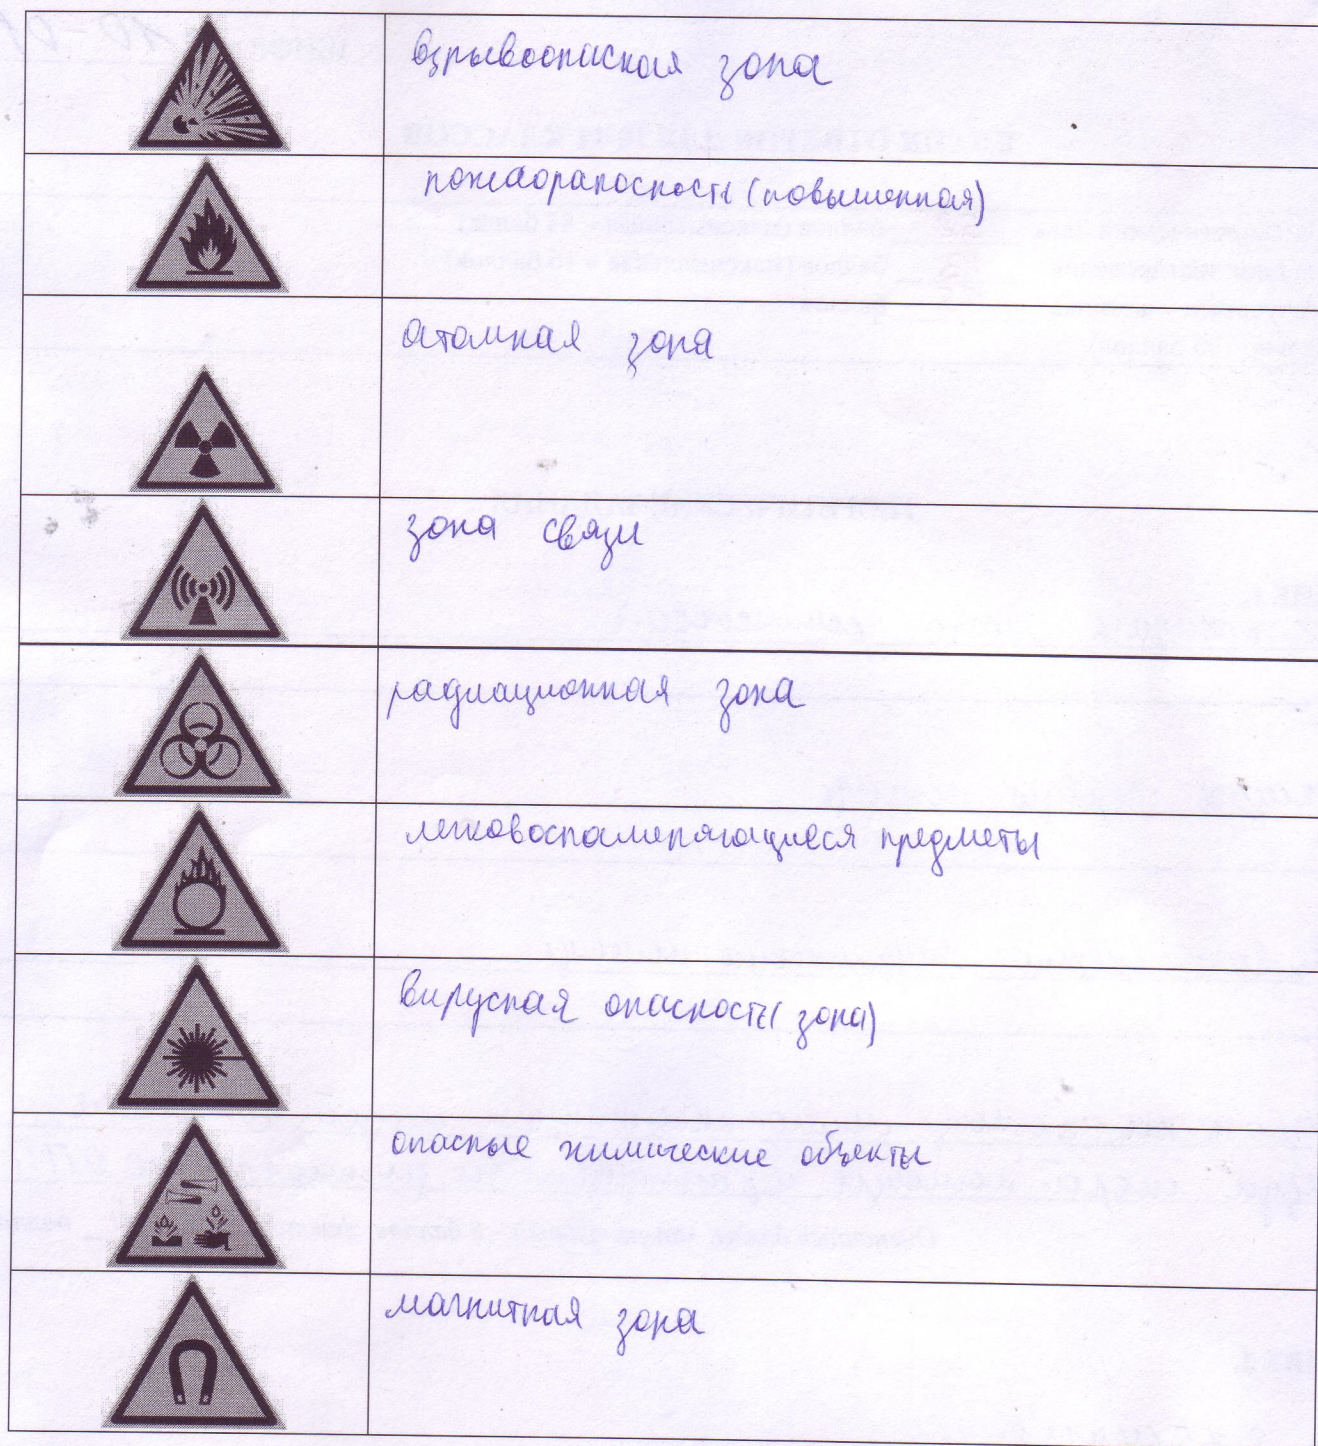 взрывоопасная зона
пожароопасность (повышенная)
атомная зона
зона связи
радиационная зона
легковоспаменяющиеся предметы
вирусная опасность (зона)
опасные химические объекты
магнитная зона